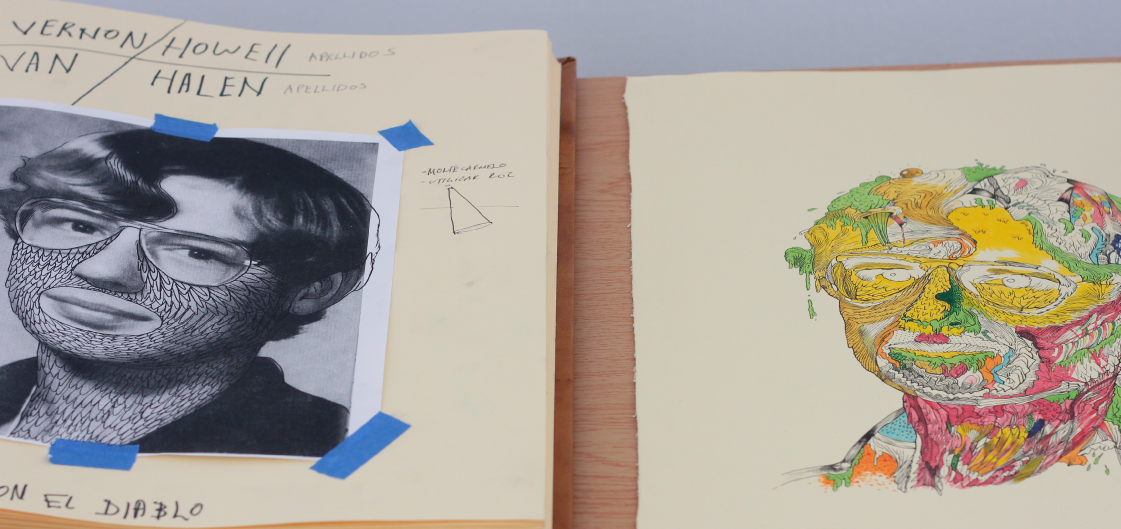 VERNON / HOWEll APELLIDOS
VAN HALEN APELLIDOS
-MONTECARMELO
-UTILIZAR
ON EL DIABLO